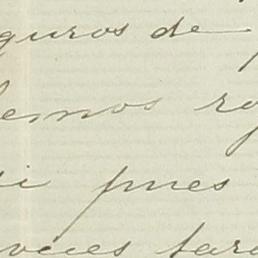 guros de
emos ro
i pues
voces tar